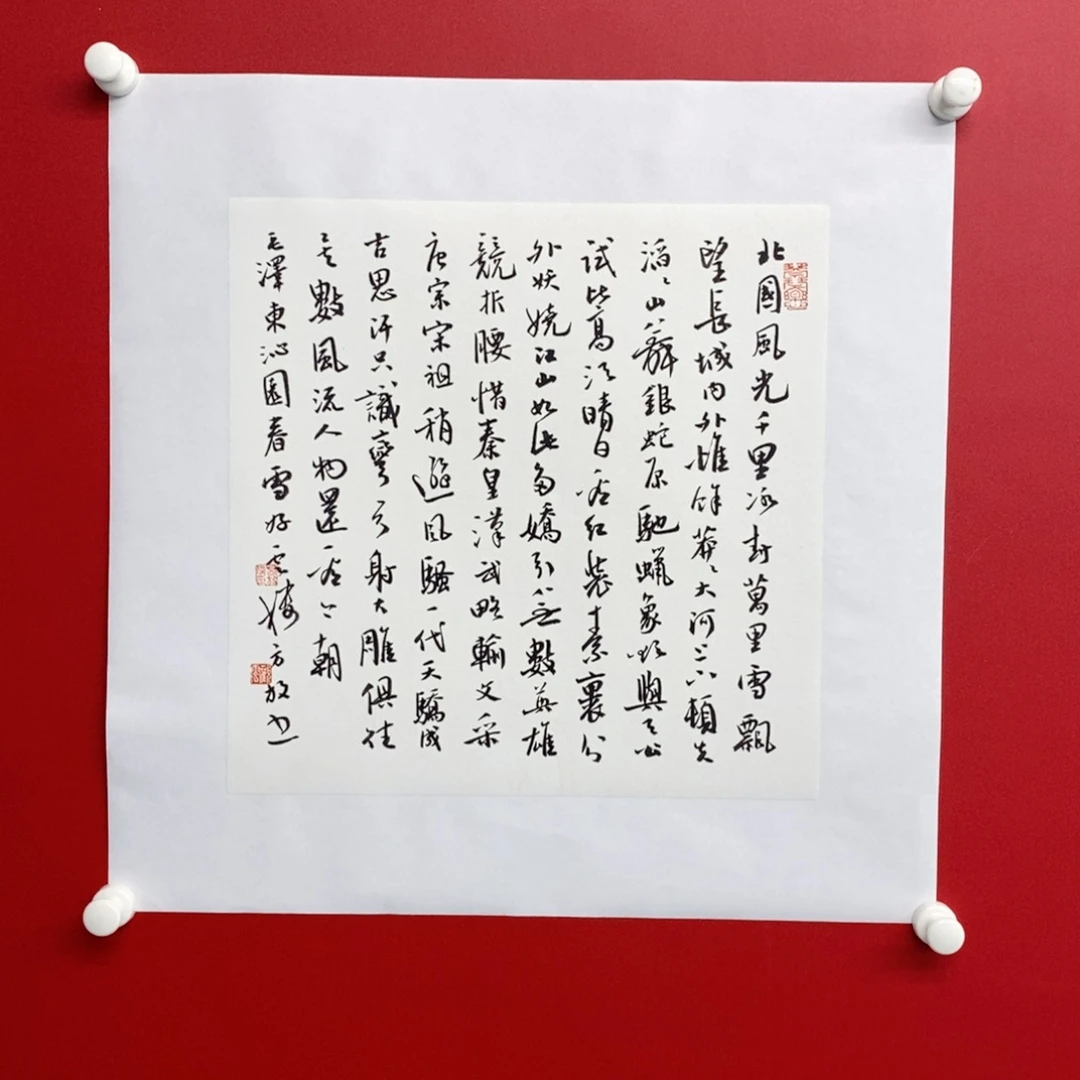 北國風光千里冰封萬里雪飄
望長城內外惟餘莽〻大河上下頓失
滔〻山舞銀蛇原馳蠟象欲與天公
試比高須晴日看紅裝素裹分
外妖嬈江山如此多嬌引無數英雄
競折腰惜秦皇漢武略輸文采
唐宗宋祖稍遜風騷一代天驕成
吉思汗只識彎弓射大雕俱往
矣數風流人物還看今朝
毛澤東沁園春雪好雲樓方放書